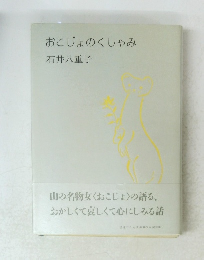 おこじょのくしゃみ
石井八重子
山の名物女〈おこじょ〉の語る、
おかしくて哀しくて心にしみる話